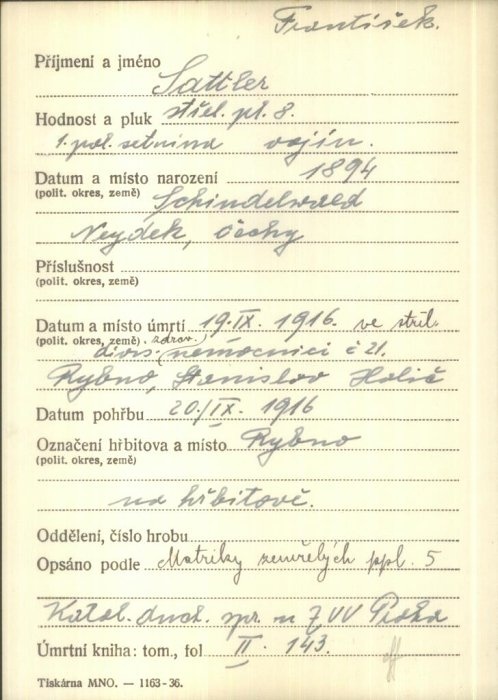 František.
Příjmení a jméno
Sattler
Hodnost a pluk střel. pl. 8.
1. pol. setnina vojín.
Datum a místo narození 1894
(polit. okres, země) Schindelwald
Neydek, Čechy
Příslušnost
(polit. okres, země)
Datum a místo úmrtí 19. IX. 1916. ve střel.
(polit. okres, země) zdrav.
divis. nemocnici č 21.
Rybno, Stanislov Halič
Datum pohřbu 20./IX. 1916
Označení hřbitova a místo Rybno
(polit. okres, země)
na hřbitově.
Oddělení, číslo hrobu
Opsáno podle Matriky zemřelých ppl. 5
Katol. duch. spr. u ZVV Praha
Úmrtní kniha: tom., fol II. 143.
Tiskárna MNO. — 1163-36.